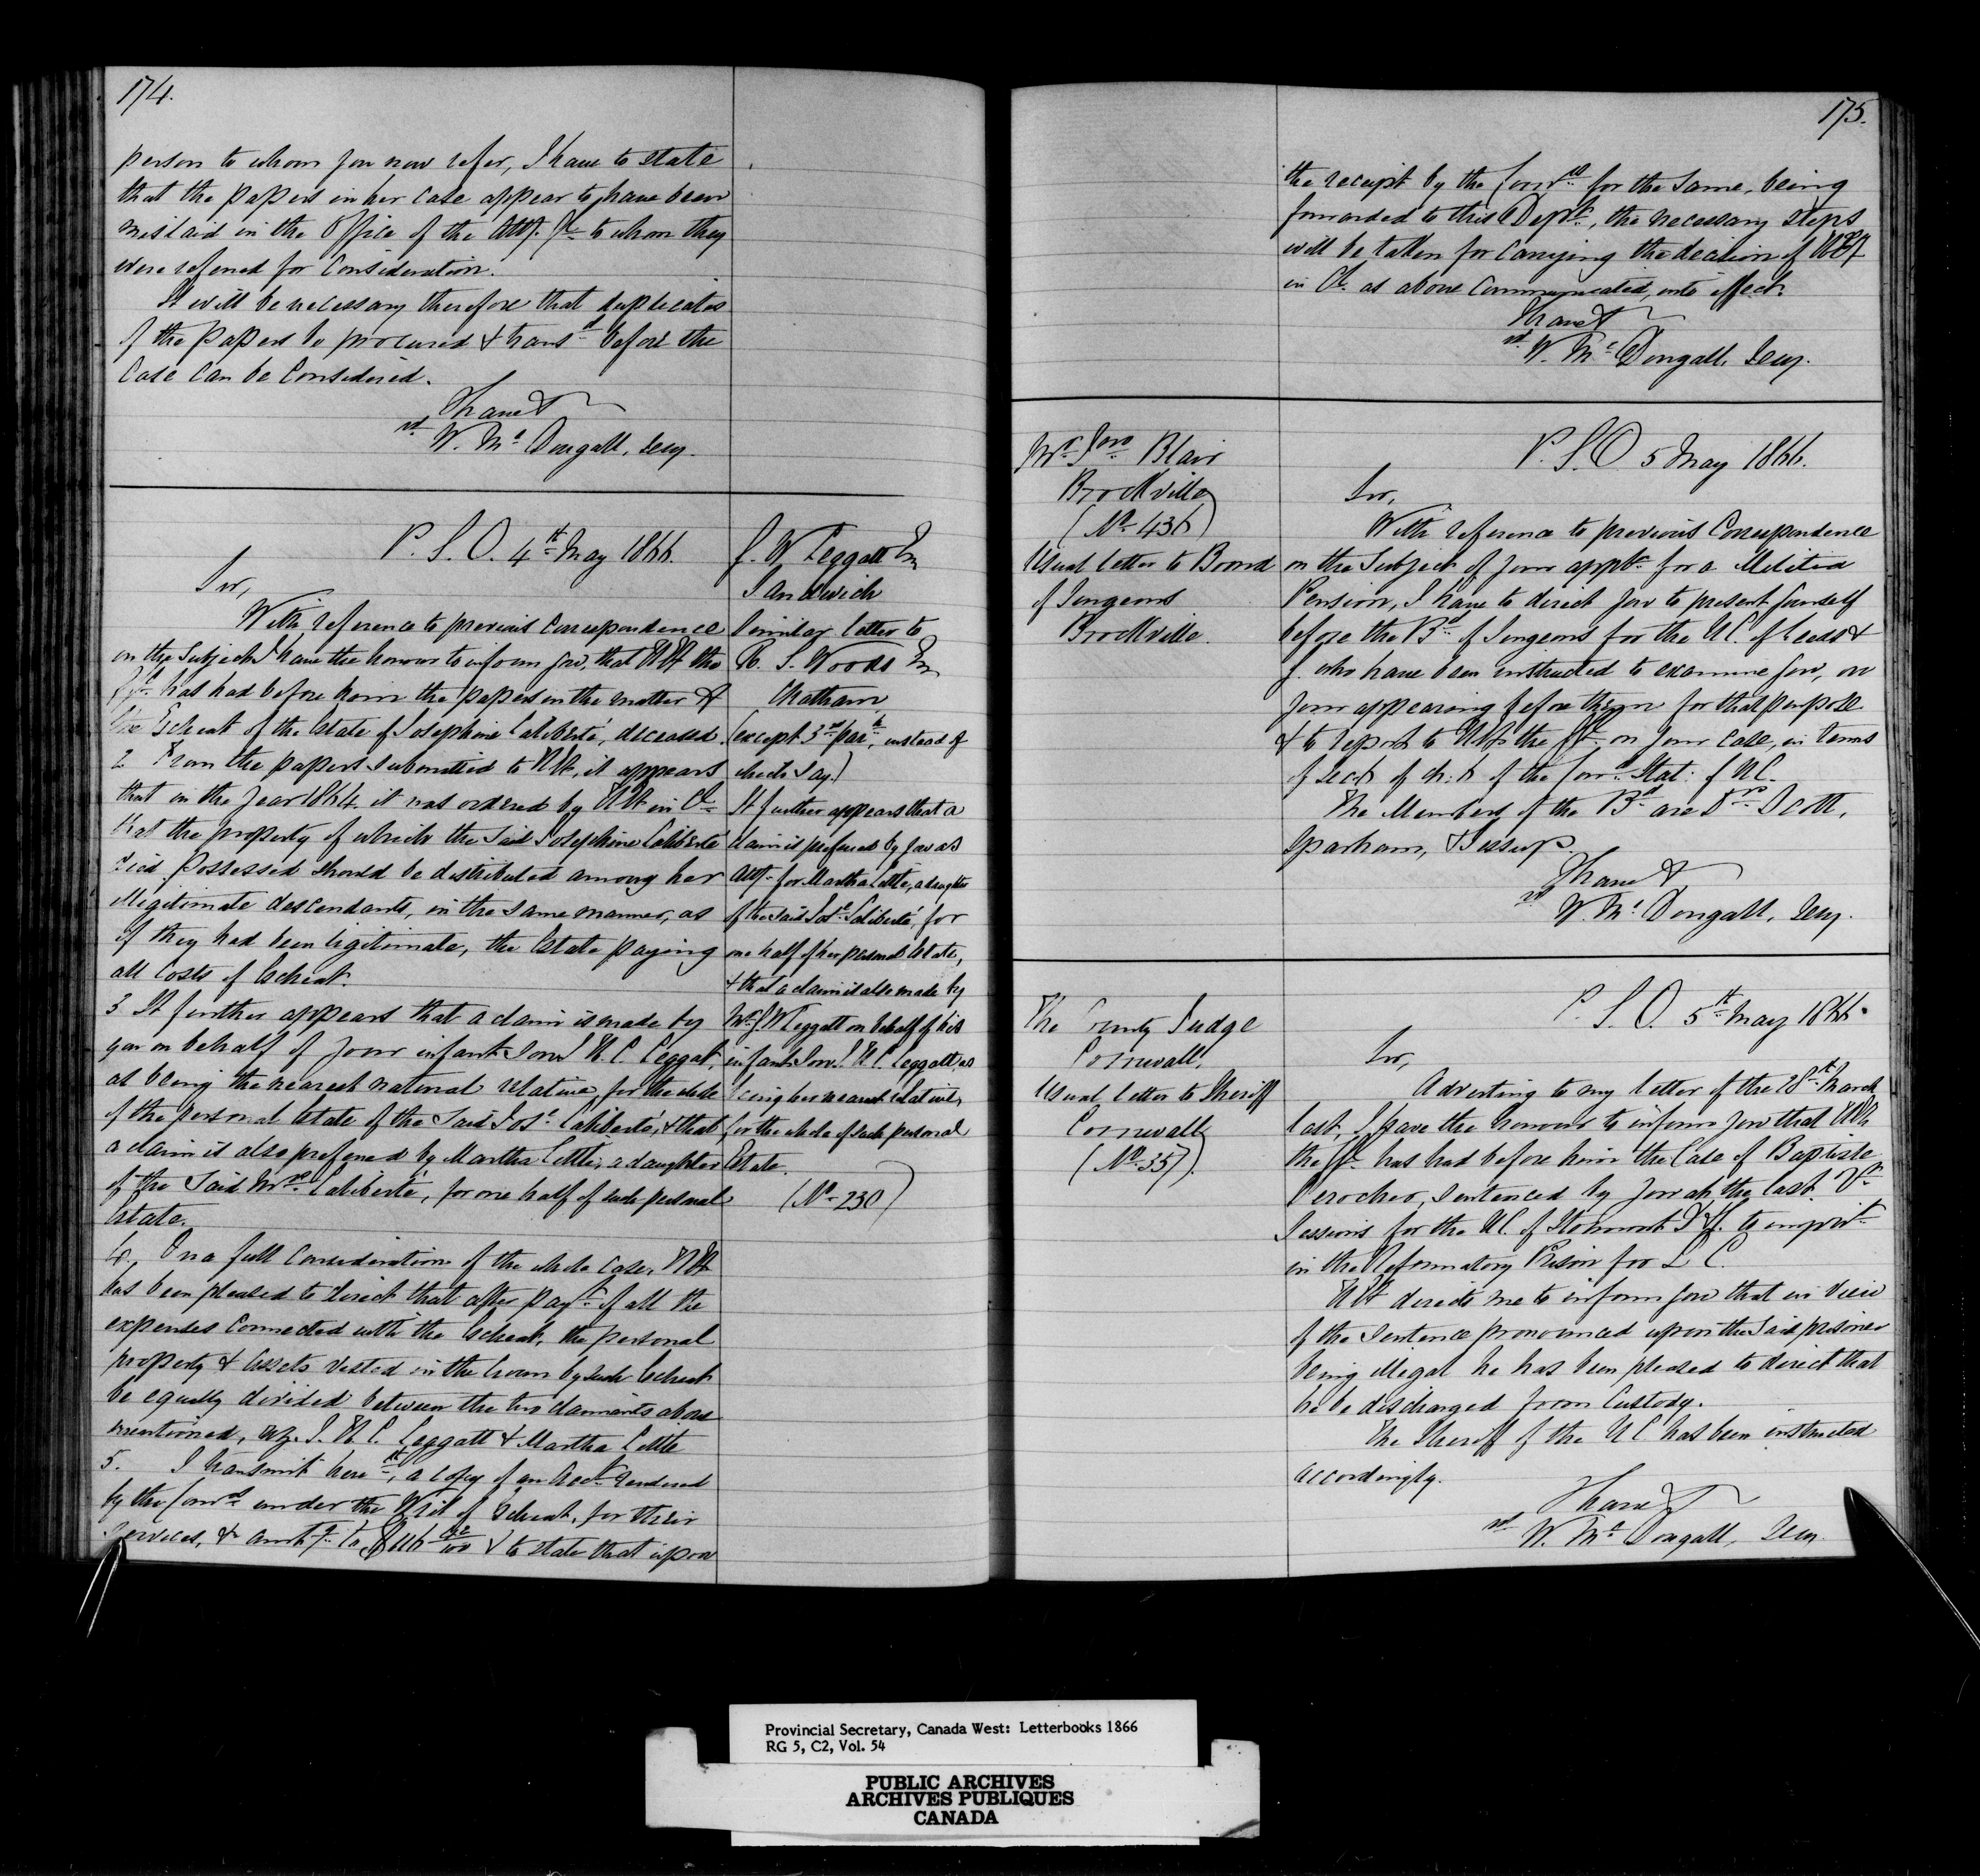 174.
person to whom you now refer, I have to state
that the papers in her case appear to have been
mislaid in the Office of the Atty. Gl. to whom they
were referred for consideration.
It will be necessary therefore that duplicates
of the papers be procured & transd. before the
case can be considered.
I have &
sd. W. McDougall, Secy.
P. S. O. 4th May 1866.
Sir,
With reference to previous correspondence
on the subject I have the honour to inform you, that HE the
has had before him the papers in the matter of
the Escheat of the Estate of Josephine Laliberté, deceased.
2 From the papers submitted to HE, it appears
that in the year 1864 it was ordered by HE in Cl.
that the property of which the said Josephine Laliberté
died possessed should be distributed among her
illegitimate descendants, in the same manner, as
if they had been legitimate, the Estate paying
all costs of Escheat.
3 It further appears that a claim is made by
you on behalf of your infant son J. H. C. Leggatt,
as being the nearest natural relative, for the whole
of the personal Estate of the said Jose. Laliberté, & that
a claim is also preferred by Martha Little, a daughter
of the said Mrs. Laliberté, for one half of such personal
Estate.
4. On a full consideration of the whole case, HE
has been pleased to direct that after payt. of all the
expenses connected with the Escheat, the personal
property & assets vested in the Crown by such Escheat
be equally divided between the two claimants above
mentioned, viz. J. H. C. Leggatt & Martha Little
5. I transmit herewth, a copy of an Acct. rendered
by the Comrs. under the Writ of Escheat, for their
services, & amtg. to & to state that upon
J. W. Leggatt Esq
Sandwich
Similar letter to
R. S. Woods Esq
Chatham
(except 3rd par. instead of
which say)
It further appears that a
claim is preferred by you as
Atty. for Martha Little, a daughter
of the said Jose. Laliberté, for
one half of her personal Estate,
& that a claim is also made by
Mr. J. W. Leggatt on behalf of his
infant son J. H. C. Leggatt, as
being her nearest relative,
for the whole of such personal
Estate.
(No. 230)
175.
the receipt by the Comrs. for the same, being
forwarded to this Dept., the necessary steps
will be taken for carrying the decision of HE
in Cl. as above communicated, into effect.
I have &
sd. W. McDougall, Secy.
Mr. Jno. Blair
Brockville
(No. 436)
Usual letter to Board
of Surgeons
Brockville.
P. S. O. 5 May 1866.
Sir,
With reference to previous Correspondence
on the subject of your appln. for a Militia
Pension, I have to direct you to present yourself
before the Bd. of Surgeons for the U.C. of Leeds &
G. who have been instructed to examine you, on
your appearing before them for that purpose
& to report to HE the on your case, in terms
of sec. 6 of ch: 6 of the Con. Stat: of U.C.
The Members of the Bd. are Drs. Scott,
Sparham, & Jessup.
I have &
sd. W. McDougall, Secy.
The County Judge
Cornwall.
Usual letter to Sheriff
Cornwall
(No. 357).
P. S. O. 5th May 1866.
Sir,
Adverting to my letter of the 28th March
last, I have the honour to inform you that HE
the has had before him the case of Baptiste
sentenced by you at the last Qr.
Sessions for the U.C. of Stormont D & G. to imprist.
in the Reformatory Prison for L C.
HE directs me to inform you that in view
of the sentence pronounced upon the said prisoner
being illegal he has been pleased to direct that
he be discharged from Custody.
The Sheriff of the U C. has been instructed
accordingly.
I have &
sd. W. McDougall, Secy.
Provincial Secretary, Canada West: Letterbooks 1866
RG 5, C2, Vol. 54
PUBLIC ARCHIVES
ARCHIVES PUBLIQUES
CANADA